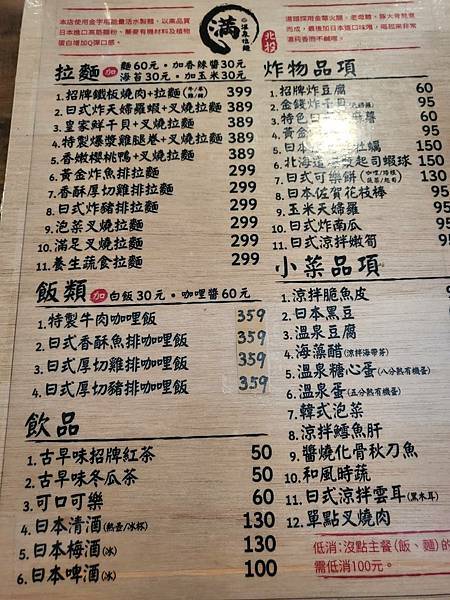 本店使用金字塔能量活水製麵,以高品質
日本進口麵粉、蕎麥有機材料及植物
蛋白增加Q彈口感。
滿
溫泉拉麵
北投
湯頭採用金華火腿、老母雞、豚大骨熬煮
而成,最後加入日本進口味噌,喝起來非常
濃純香而不鹹喔。
拉麵 加 麵60元.加香辣醬30元
海苔30元.加玉米30元
1.招牌鐵板燒肉+拉麵 399
2.日式炸天婦羅蝦+叉燒拉麵 389
3.皇家鮮干貝+叉燒拉麵 389
4.特製爆漿雞腿卷+叉燒拉麵 389
5.香嫩櫻桃鴨+叉燒拉麵 389
6.黃金炸魚排拉麵 299
7.香酥厚切雞排拉麵 299
8.日式炸豬排拉麵 299
9.泡菜叉燒拉麵 299
10.滿足叉燒拉麵 299
11.養生蔬食拉麵 299
飯類 加 白飯30元.咖哩醬60元
1.特製牛肉咖哩飯 359
2.日式香酥魚排咖哩飯 359
3.日式厚切雞排咖哩飯 359
4.日式厚切豬排咖哩飯 359
飲品
1.古早味招牌紅茶 50
2.古早味冬瓜茶 50
3.可口可樂 60
4.日本清酒(熱壺/冰杯) 130
5.日本梅酒(冰) 130
6.日本啤酒(冰) 100
炸物品項
1.招牌炸豆腐 60
2.金錢炸干貝 95
3.特色日 麻薯 60
4.黃金 95
5.日本 牡蠣 150
6.北海道 起司蝦球 150
7.日式可樂餅(咖哩/時蔬 蔬菜/起司) 130
8.日本佐賀花枝棒 95
9.玉米天婦羅 95
10.日式炸南瓜 95
11.日式涼拌嫩筍
小菜品項
1.涼拌脆魚皮 9
2.日本黑豆
3.溫泉豆腐
4.海藻醋(涼拌海帶芽)
5.溫泉糖心蛋(八分熟有機蛋)
6.溫泉蛋(五分熟有機蛋)
7.韓式泡菜
8.涼拌鱈魚肝
9.醬燒化骨秋刀魚
10.和風時蔬
11.日式涼拌雲耳(黑木耳)
12.單點叉燒肉
低消:沒點主餐(飯、麵)的
需低消100元。